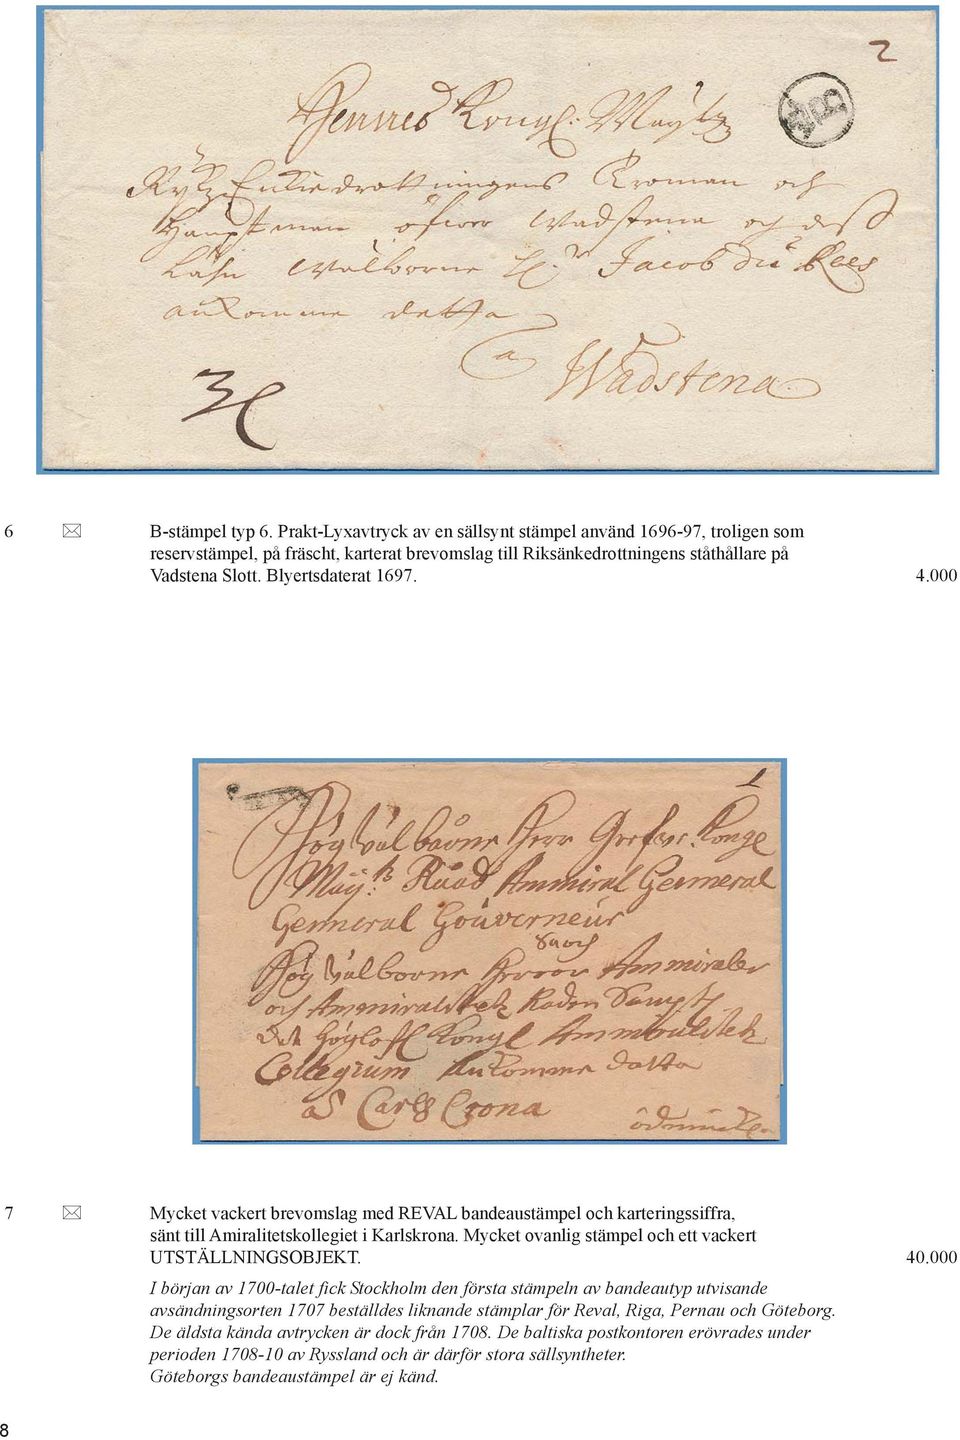 2
Hennes Kongl: Maÿtz
B
RykzEnkiedrottningens Kroman och
Hauptman öfwer Wadstena och dess
Lähn Wälborne H:r Jacob du Rees
ankomme detta
a Wadstena
6 B-stämpel typ 6. Prakt-Lyxavtryck av en sällsynt stämpel använd 1696-97, troligen som
reservstämpel, på fräscht, karterat brevomslag till Riksänkedrottningens ståthållare på
Vadstena Slott. Blyertsdaterat 1697. 4.000
1
Hög Wälborne Herr Grefwe. Konge
Maÿ:tz Rååd Ammiral Genneral
Genneral Gouverneur
Hög Wälborne Herrar Ammiraler
och Ammiralitetz Råden Sampt
det Höglofl Kongl Ammiralitetz
Collegium Ankomme datta
a Carls Crona
7 Mycket vackert brevomslag med REVAL bandeaustämpel och karteringssiffra,
sänt till Amiralitetskollegiet i Karlskrona. Mycket ovanlig stämpel och ett vackert
UTSTÄLLNINGSOBJEKT. 40.000
I början av 1700-talet fick Stockholm den första stämpeln av bandeautyp utvisande
avsändningsorten 1707 beställdes liknande stämplar för Reval, Riga, Pernau och Göteborg.
De äldsta kända avtrycken är dock från 1708. De baltiska postkontoren erövrades under
perioden 1708-10 av Ryssland och är därför stora sällsyntheter.
Göteborgs bandeaustämpel är ej känd.
8